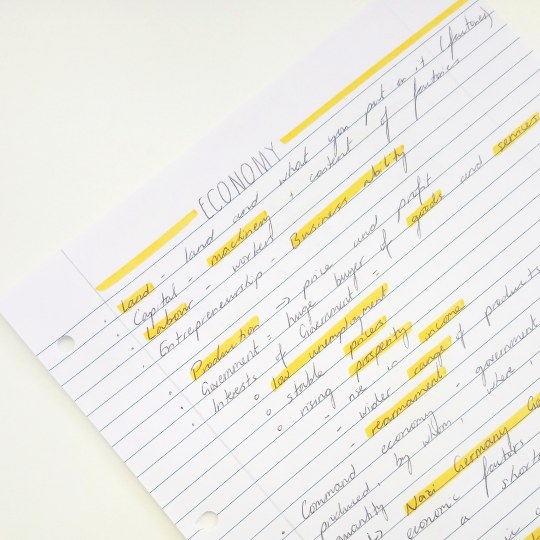 ECONOMY
· Land - land and what you put on it (factories)
· Capital - machinery + content of factories
· Labour - workers
· Entrepreneurship - Business ability
· Production → price and profit
· Government = huge buyer of goods and services
· Interests of Government =
o low unemployment
o stable prices
o rising prosperity
- rise in income
- wider range of products
- rearmament
Command economy - government
produced, by whom, where,
quantity
Nazi Germany
economic factors
a short